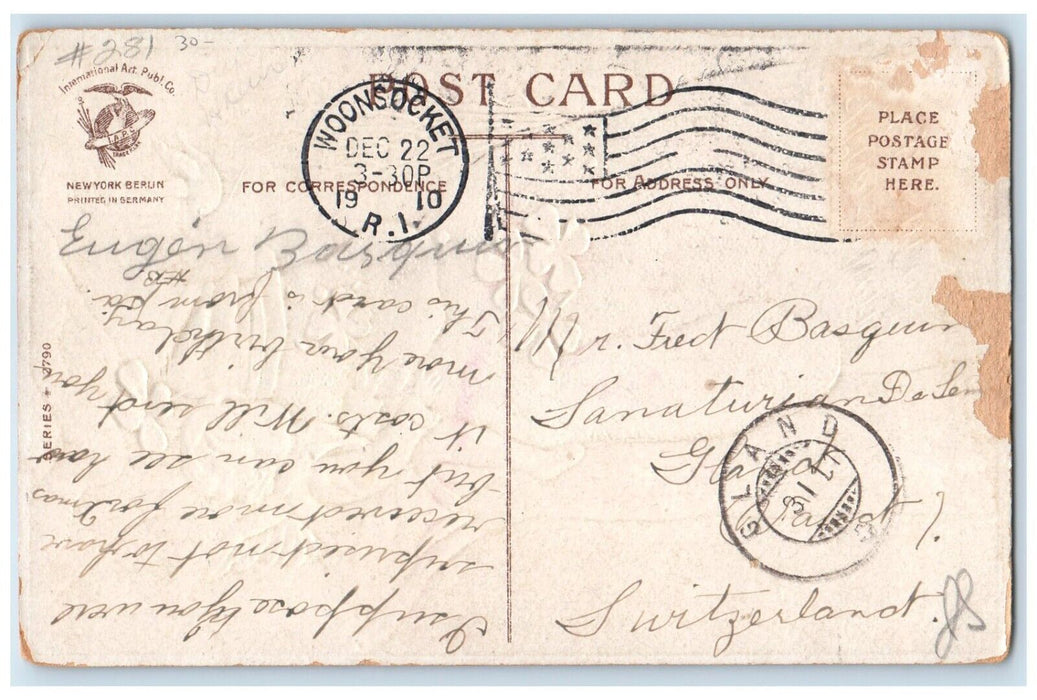 #281
30-
International Art. Publ. Co.
NEW YORK BERLIN
PRINTED IN GERMANY
POST CARD
WOONSOCKET
DEC 22
3-30P
19 10
R.I.
FOR CORRESPONDENCE
FOR ADDRESS ONLY
PLACE
POSTAGE
STAMP
HERE.
SERIES # 2790
I suppose you were
surprised not to have
received more for Xmas
but you can see how
it costs. Will send you
more your birthday.
This card is from pa.
Mr. Fred Basquin
Sanaturian De
Gland
Switzerland.
GLAND